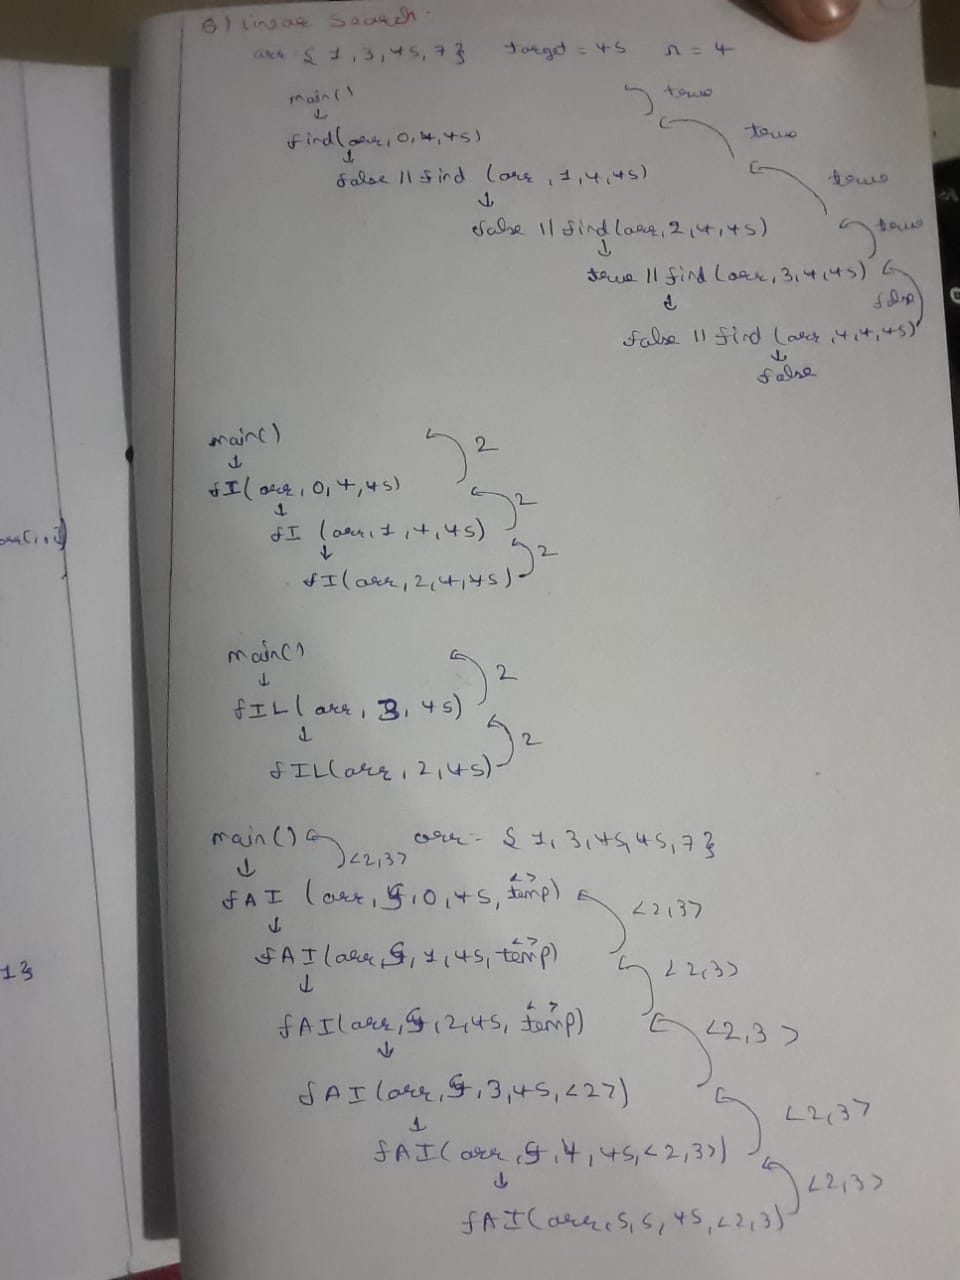 6) Linear Search.
arr = { 1, 3, 45, 7 } target = 45 n = 4
main() true
↓
find(arr, 0, 4, 45) true
↓
false || find (arr, 1, 4, 45) true
↓
false || find(arr, 2, 4, 45) true
↓
true || find (arr, 3, 4, 45)
↓ false
false || find (arr, 4, 4, 45)
↓
false
main() 2
↓
fI( arr, 0, 4, 45) 2
↓
fI (arr, 1, 4, 45) 2
↓
fI(arr, 2, 4, 45)
main() 2
↓
fIL( arr, 3, 45) 2
↓
fIL(arr, 2, 45)
main() <2,3> arr = { 1, 3, 45, 45, 7 }
↓ < >
fAI (arr, 5, 0, 45, temp) <2,3>
↓ < >
fAI(arr, 5, 1, 45, temp) <2,3>
↓ < >
fAI(arr, 5, 2, 45, temp) <2,3>
↓
fAI (arr, 5, 3, 45, <2>) <2,3>
↓
fAI( arr, 5, 4, 45, <2,3>) <2,3>
↓
fAI(arr, 5, 5, 45, <2,3)
13